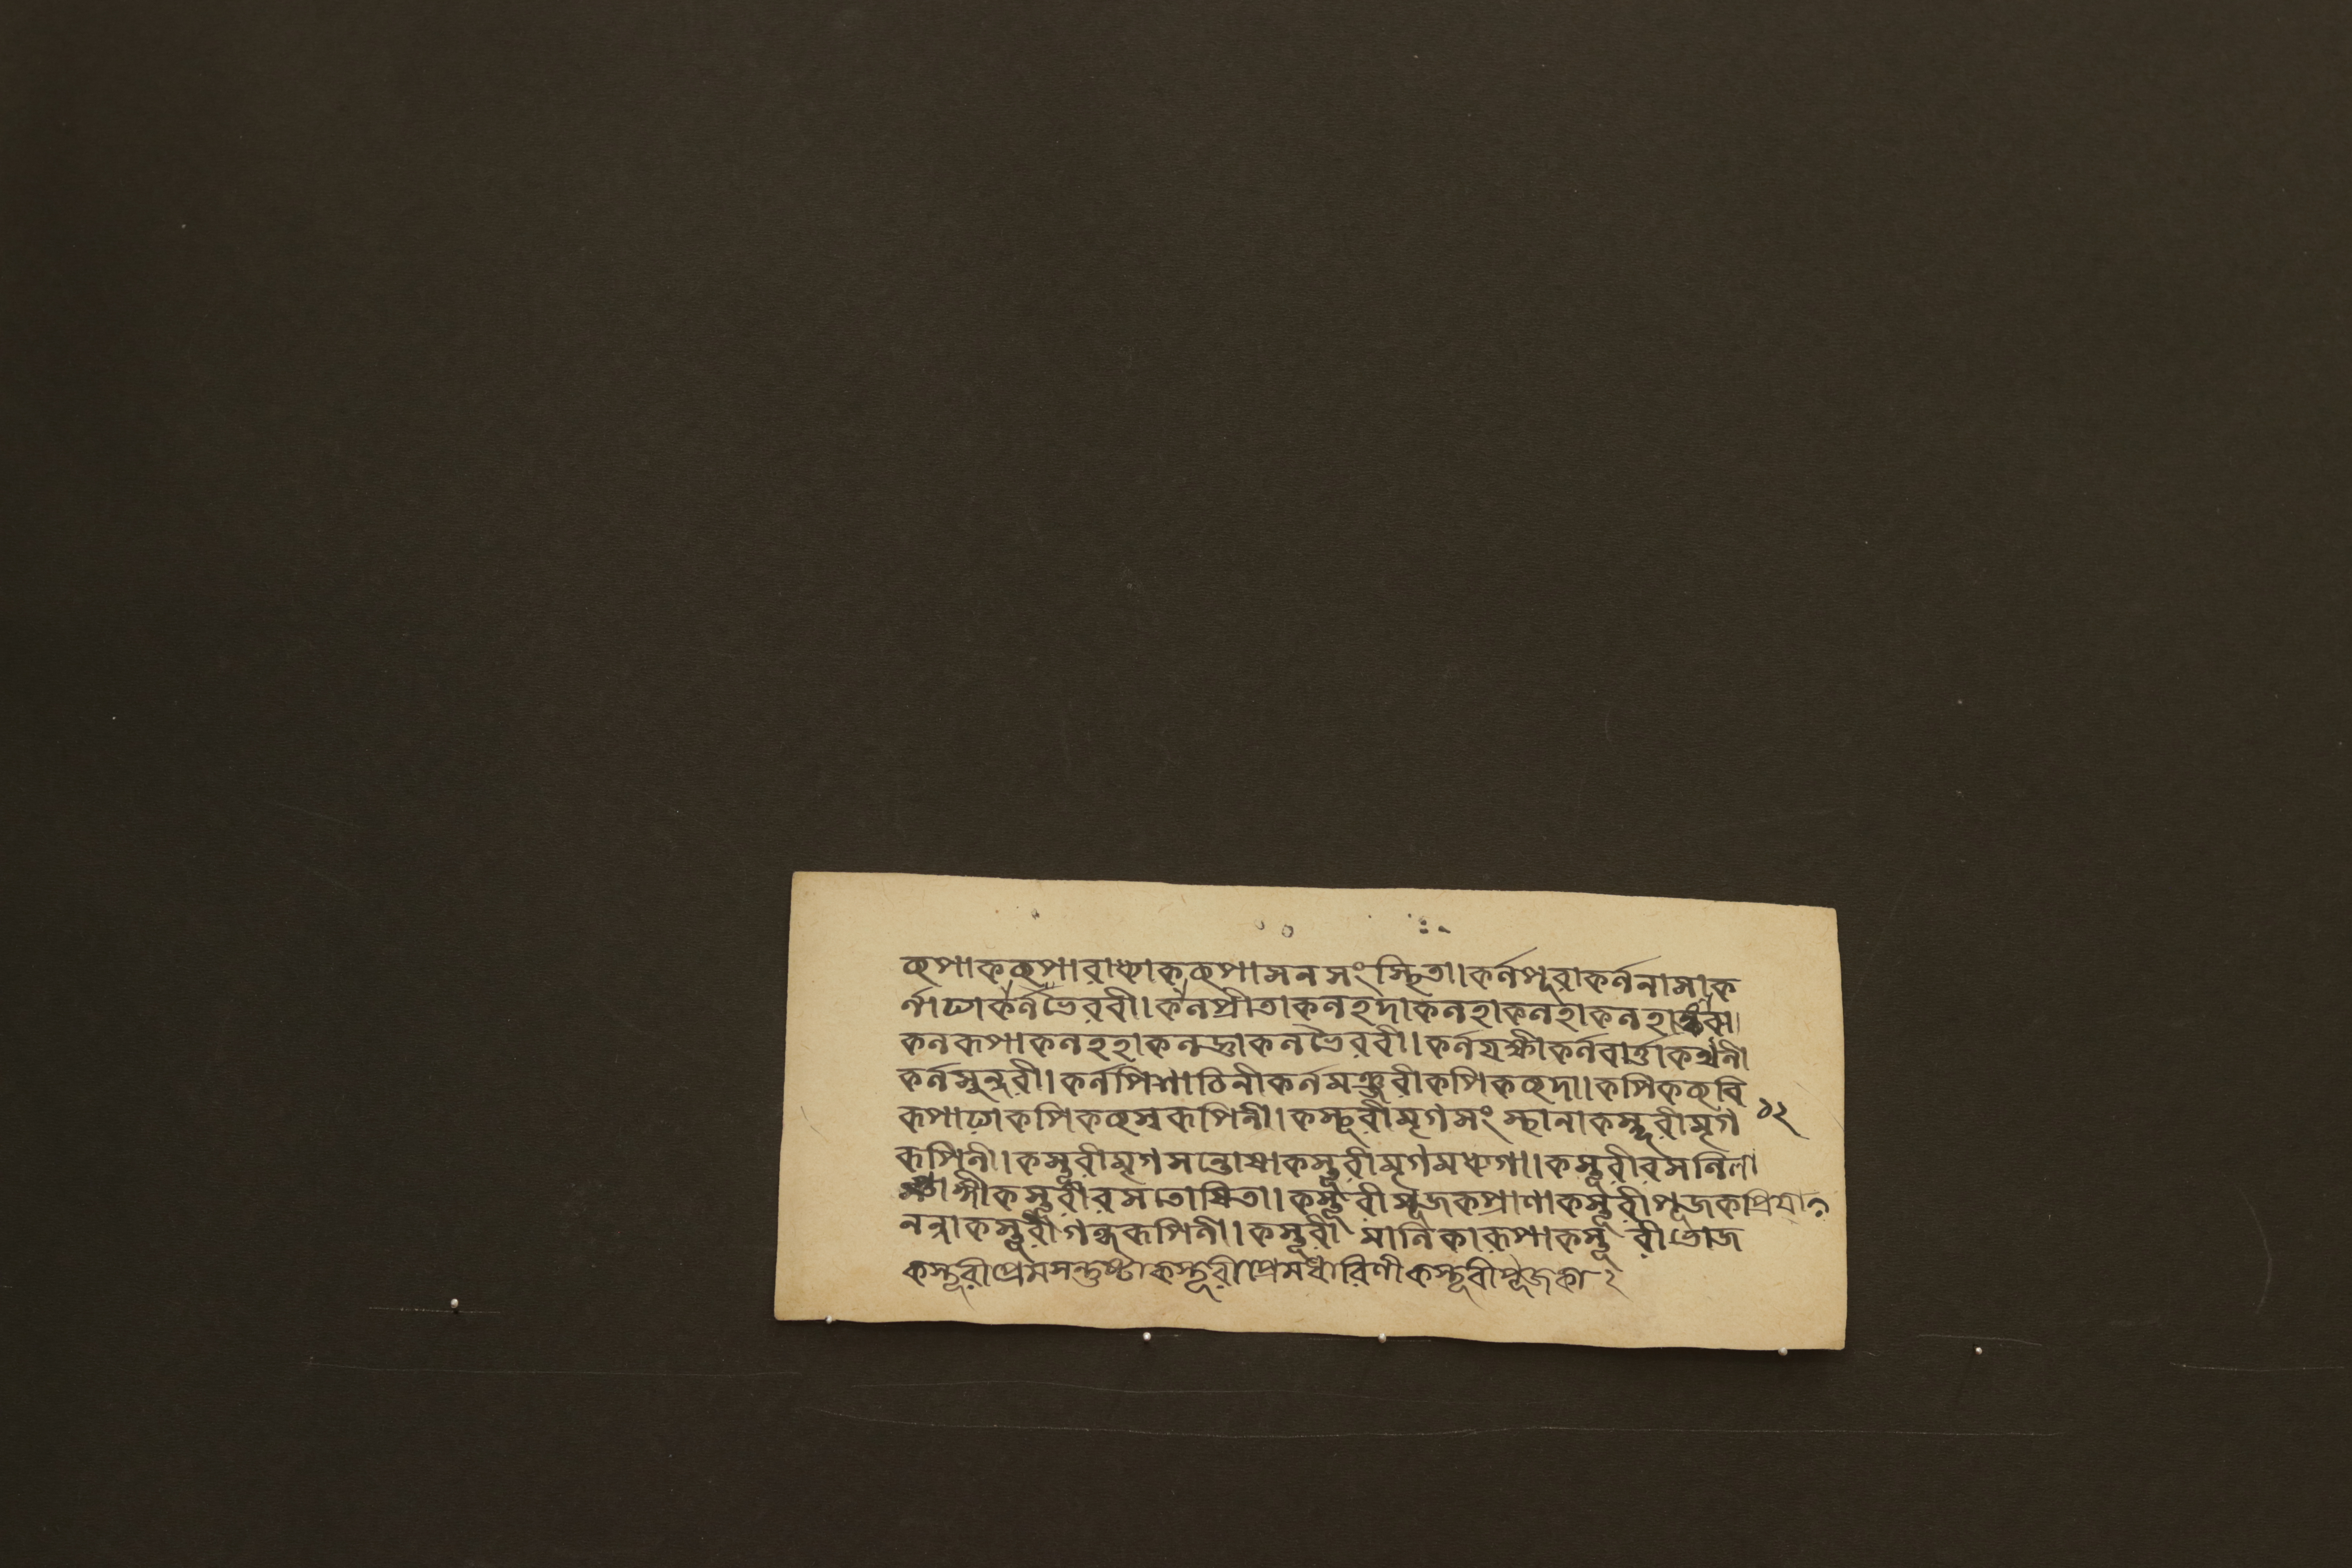 কৃপাককৃপারাধ্যাককৃপাসনসংস্থিতা। কর্নপূরাকর্ননাসাক
র্নাঢ্যাকর্নভৈরবী। কর্নপ্রীতাকনহদাকনহাকনহাকনহা
কনরূপাকনহহাকনদ্রুাকনভৈরবী। কর্নযক্ষীকর্নবার্ত্তাকর্থনী
কর্নসুন্দরী। কর্নপিশাচিনীকর্নমঞ্জরীকপিককৃদা। কপিককৃবি
রূপাঢ্যাকপিককৃস্বরূপিনী। কস্তূরীমৃগসংস্থানাকস্তূরীমৃগ ১২
রূপিনী। কস্তূরীমৃগসন্তোষাকস্তূরীমৃগমধ্যগা। কস্তূরীরসনিলা
ঙ্গীকস্তূরীরসতোষিতা। কস্তূরীপূজকপ্রাণাকস্তূরীপূজকপ্রিয়া
কস্তূরীগন্ধরূপিনী। কস্তূরীমানিকারূপাকস্তূরীভোজ
কস্তূরীপ্রেমসন্তুষ্টাকস্তূরীপ্রেমধারিণীকস্তূরীপূজকা ২